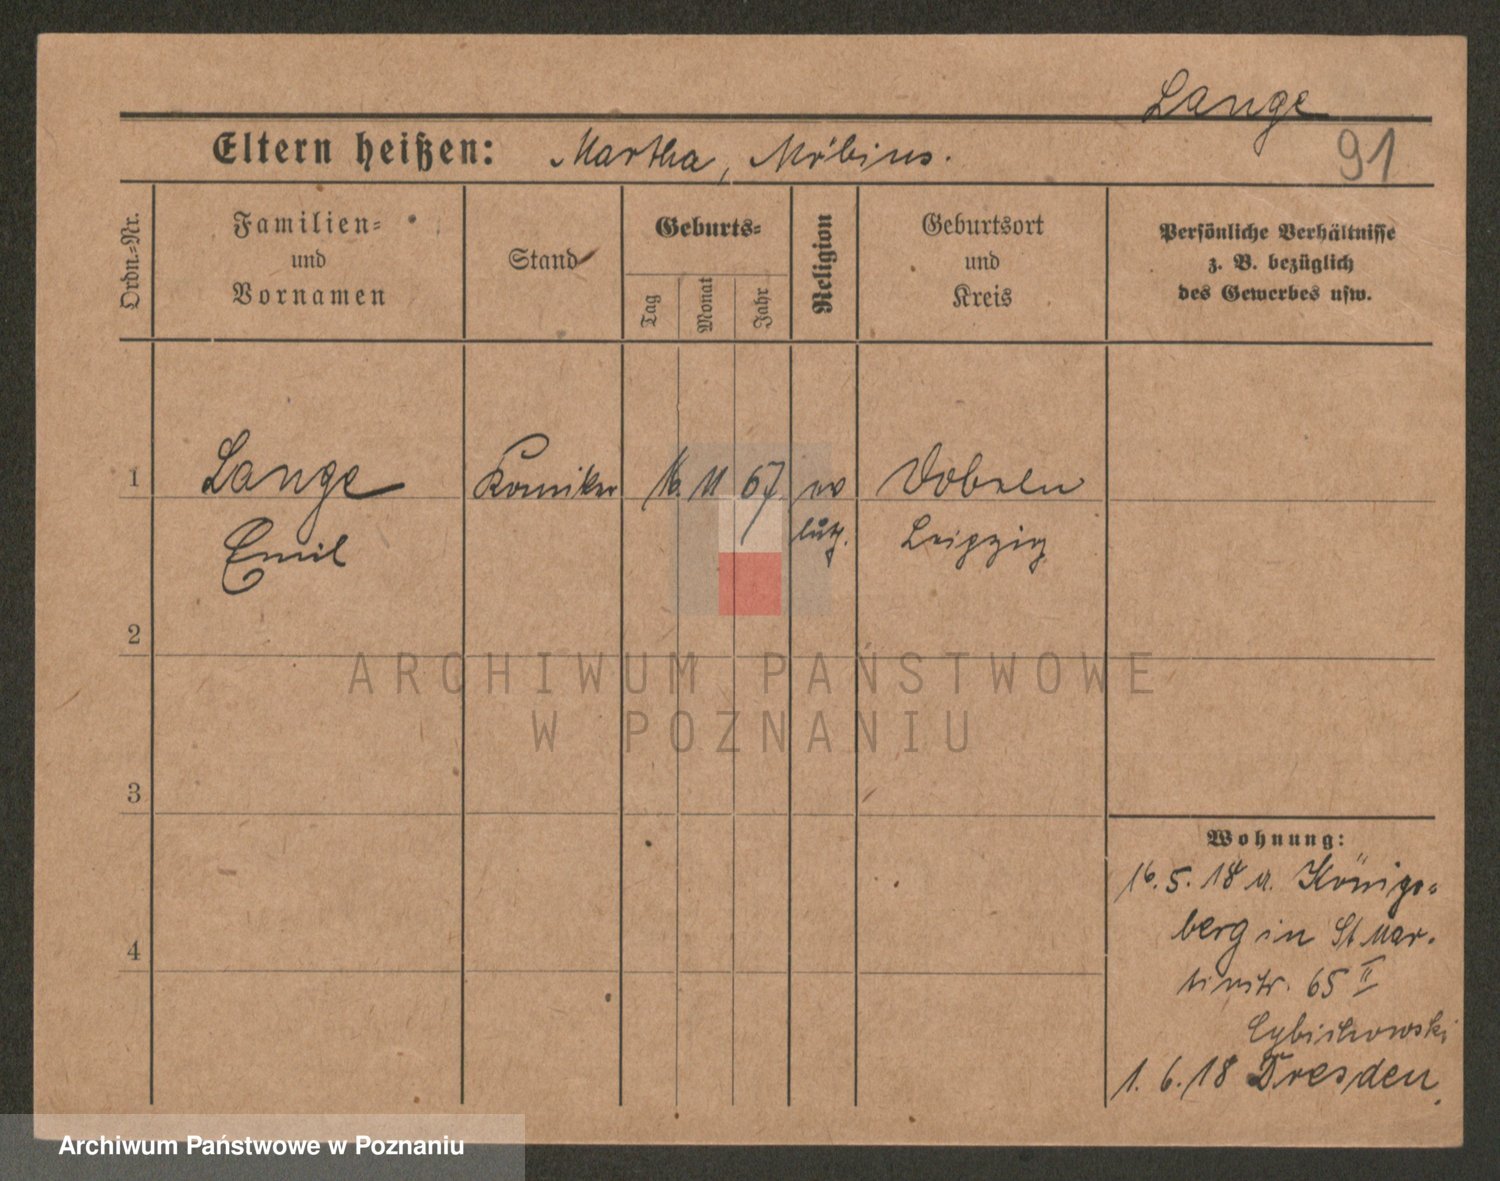 Lange
91
Eltern heißen: Martha, Möbius.
Ordn.=Nr.
Familien=
und
Vornamen
Stand
Geburts=
Tag
Monat
Jahr
Religion
Geburtsort
und
Kreis
Persönliche Verhältnisse
z. B. bezüglich
des Gewerbes usw.
1 Lange Komiker 16. 11 67 ev Dobeln
Emil luth. Leipzig
2
ARCHIWUM PAŃSTWOWE
W POZNANIU
3
Wohnung:
16.5.18 a. Königs=
berg in St Mar-
tinstr. 65 II
4
1.6.18 Dresden.
Archiwum Państwowe w Poznaniu